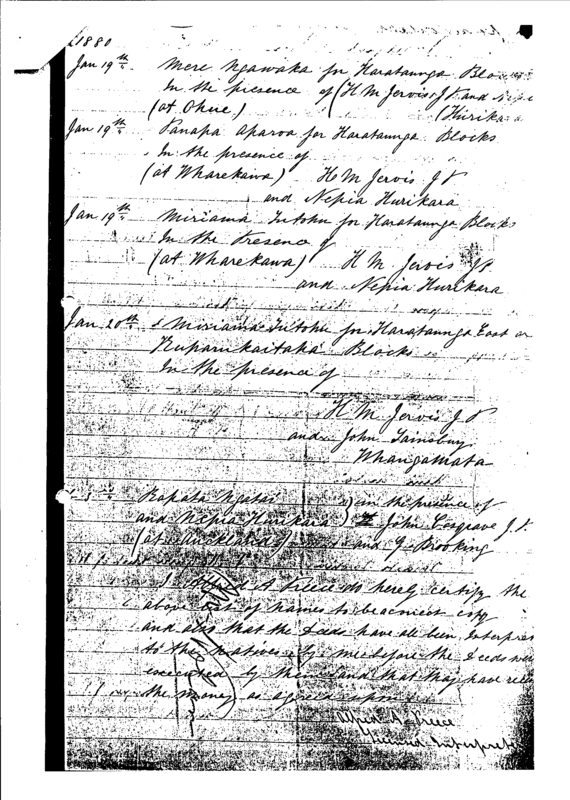 1880
Jan 19th Mere Ngawaka for Harataunga Blocks
In the presence of (H M Jervis J P and Nepia
(at Ohue) (Hurikara
Jan 19th Panapa Aparoa for Harataunga Blocks
In the presence of
(at Wharekawa) H M Jervis J P
and Nepia Hurikara
Jan 19th Miriama Tutohu for Harataunga Blocks
In the Presence of
(at Wharekawa) H M Jervis J P
and Nepia Hurikara
Jan 20th Miriama Tutohu for Harataunga East or
Kuparukaitaka Blocks
In the presence of
H M Jervis J P
and John Sainsbury
Whangamata
Rapata Ngatai } in the presence of
and Nepia Hurikara } John Cosgrave J.P.
and G Brooking
I Alfred A Preece do hereby certify the
above list of names to be a correct copy
and also that the Deeds have all been Interpre
to the natives by me before the Deeds were
executed by them and that they have rece
the money as agreed
Alfred A. Preece
Licensed Interprete